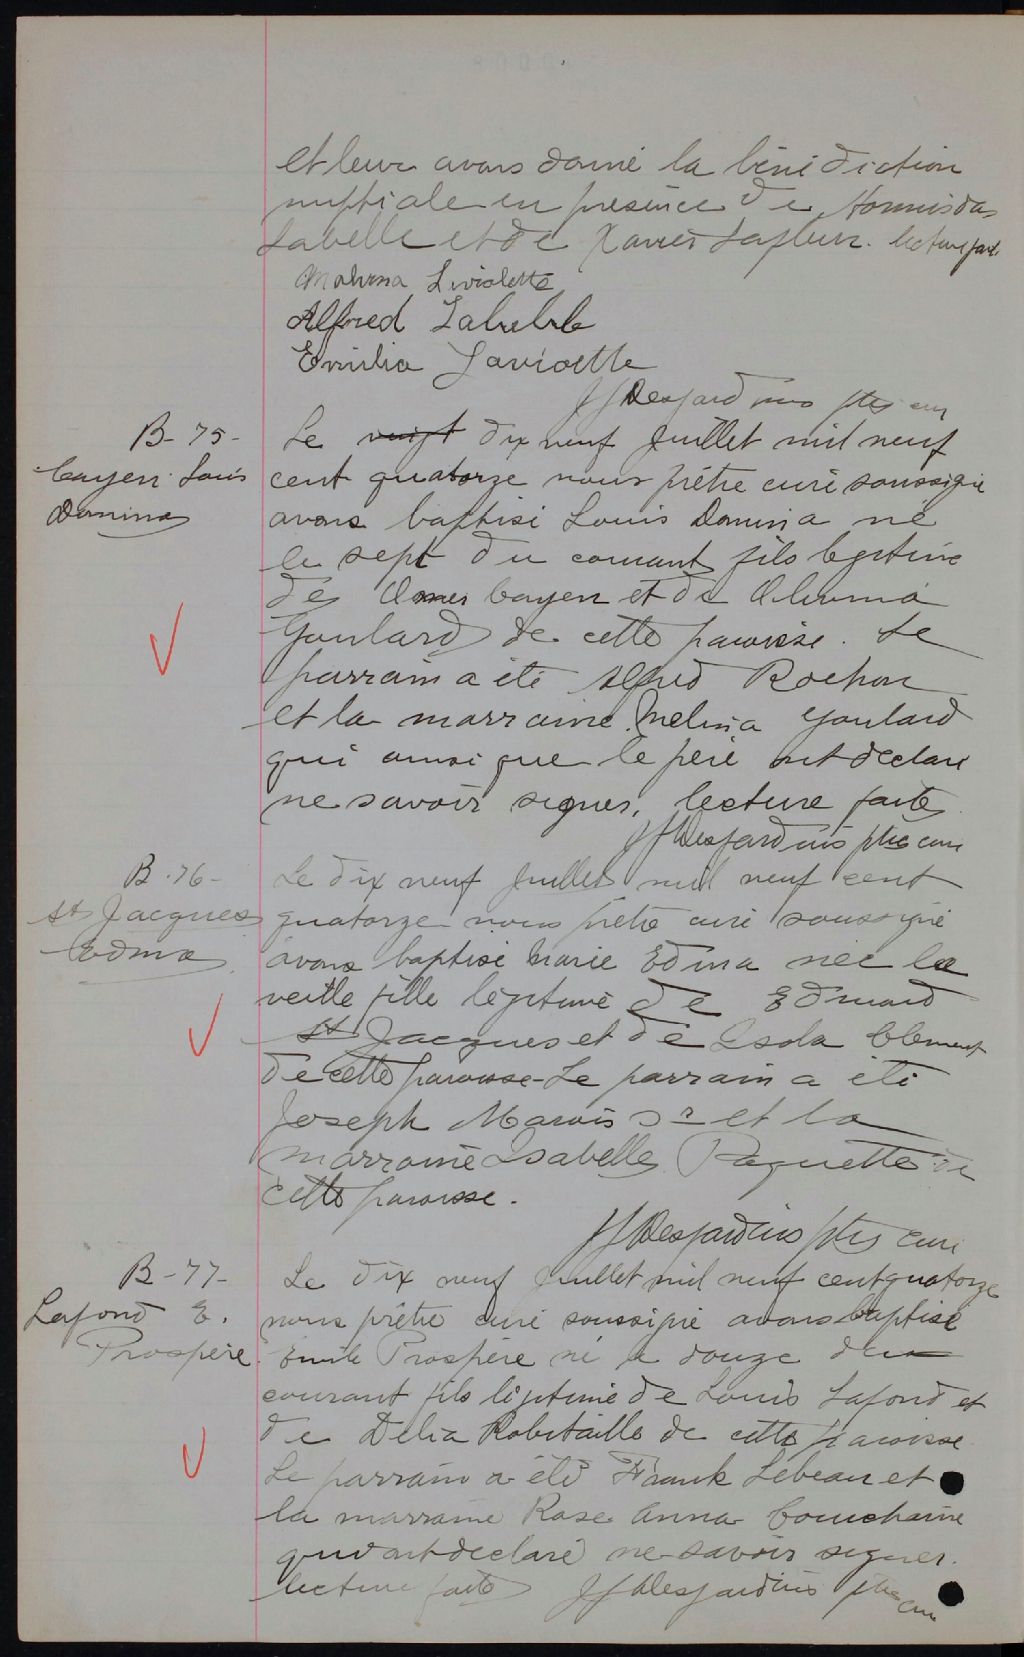 et leur avons donné la bénédiction
nuptiale en présence de Hormisdas
Labelle et de Xavier Lafleur. lecture faite
Malvina Leviolette
Alfred Labelle
Emilia Laviolette
JJ Desjardins ptre cur
B-75-
Cayen Louis
Domina
Le vingt dix neuf Juillet mil neuf
cent quatorze nous prêtre curé soussigné
avons baptisé Louis Domina né
le sept du courant fils légitime
de Omer Cayen et de
Goulard de cette paroisse. Le
parrain a été Alfred Rochon
et la marraine Melina Goulard
qui ainsi que le père ont déclaré
ne savoir signer, lecture faite
JJ Desjardins ptre cure
B-76-
St Jacques
Edma
Le dix neuf Juillet mil neuf cent
quatorze nous prêtre curé soussigné
avons baptisé Marie Edma née la
veille fille légitime de Edouard
St Jacques et de Clement
de cette paroisse - Le parrain a été
Joseph Marois Sr et la
marraine Isabelle Paquette de
cette paroisse.
JJ Desjardins ptre curé
B-77-
Lafond E.
Prospère
Le dix neuf Juillet mil neuf cent quatorze
nous prêtre curé soussigné avons baptisé
Emile Prospère né le douze du
courant fils légitime de Louis Lafond et
de Delia Robitaille de cette paroisse
Le parrain a été Frank Lebeau et
la marraine Rose Anna Courchaine
qui ont déclaré ne savoir signer.
lecture faite JJ Desjardins ptre cure